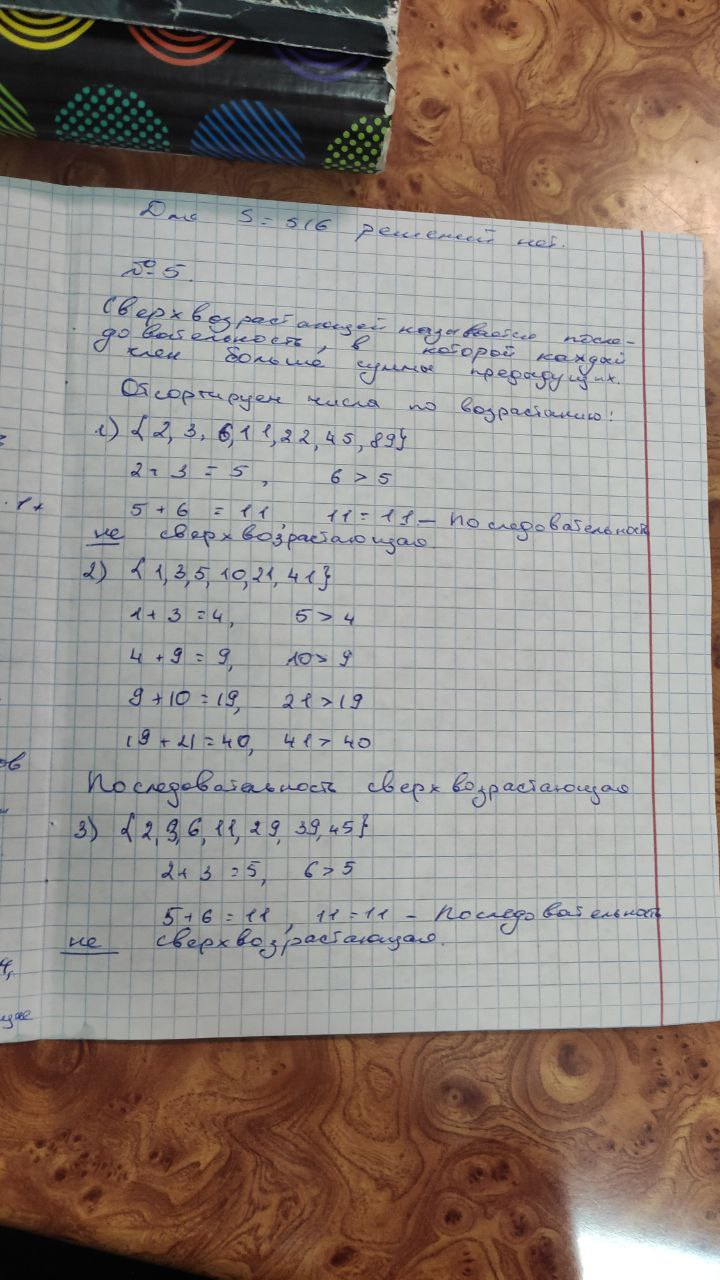 Для S = 516 решений нет.
№ 5.
Сверхвозрастающей называется после-
довательность, в которой каждый
член больше суммы предыдущих.
Отсортируем числа по возрастанию:
1) {2, 3, 6, 11, 22, 45, 89}
2 + 3 = 5, 6 > 5
5 + 6 = 11, 11 = 11 – последовательность
не сверхвозрастающая.
2) {1, 3, 5, 10, 21, 41}
1 + 3 = 4, 5 > 4
4 + 9 = 9, 10 > 9
9 + 10 = 19, 21 > 19
19 + 21 = 40, 41 > 40
Последовательность сверхвозрастающая
3) {2, 3, 6, 11, 29, 39, 45}
2 + 3 = 5, 6 > 5
5 + 6 = 11, 11 = 11 – последовательность
не сверхвозрастающая.